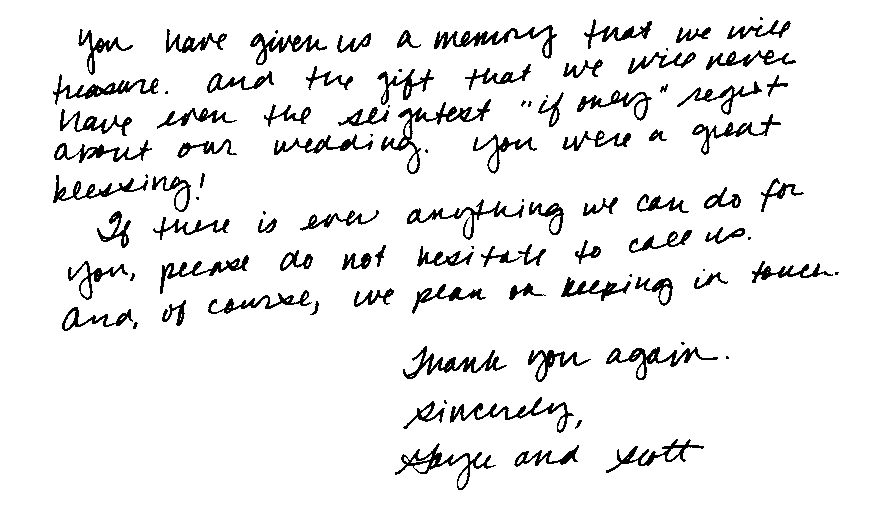 You have given us a memory that we will
treasure. And the gift that we will never
have even the slightest "if only" regret
about our wedding. You were a great
blessing!
If there is ever anything we can do for
you, please do not hesitate to call us.
And, of course, we plan on keeping in touch.
Thank you again.
Sincerely,
and Scott